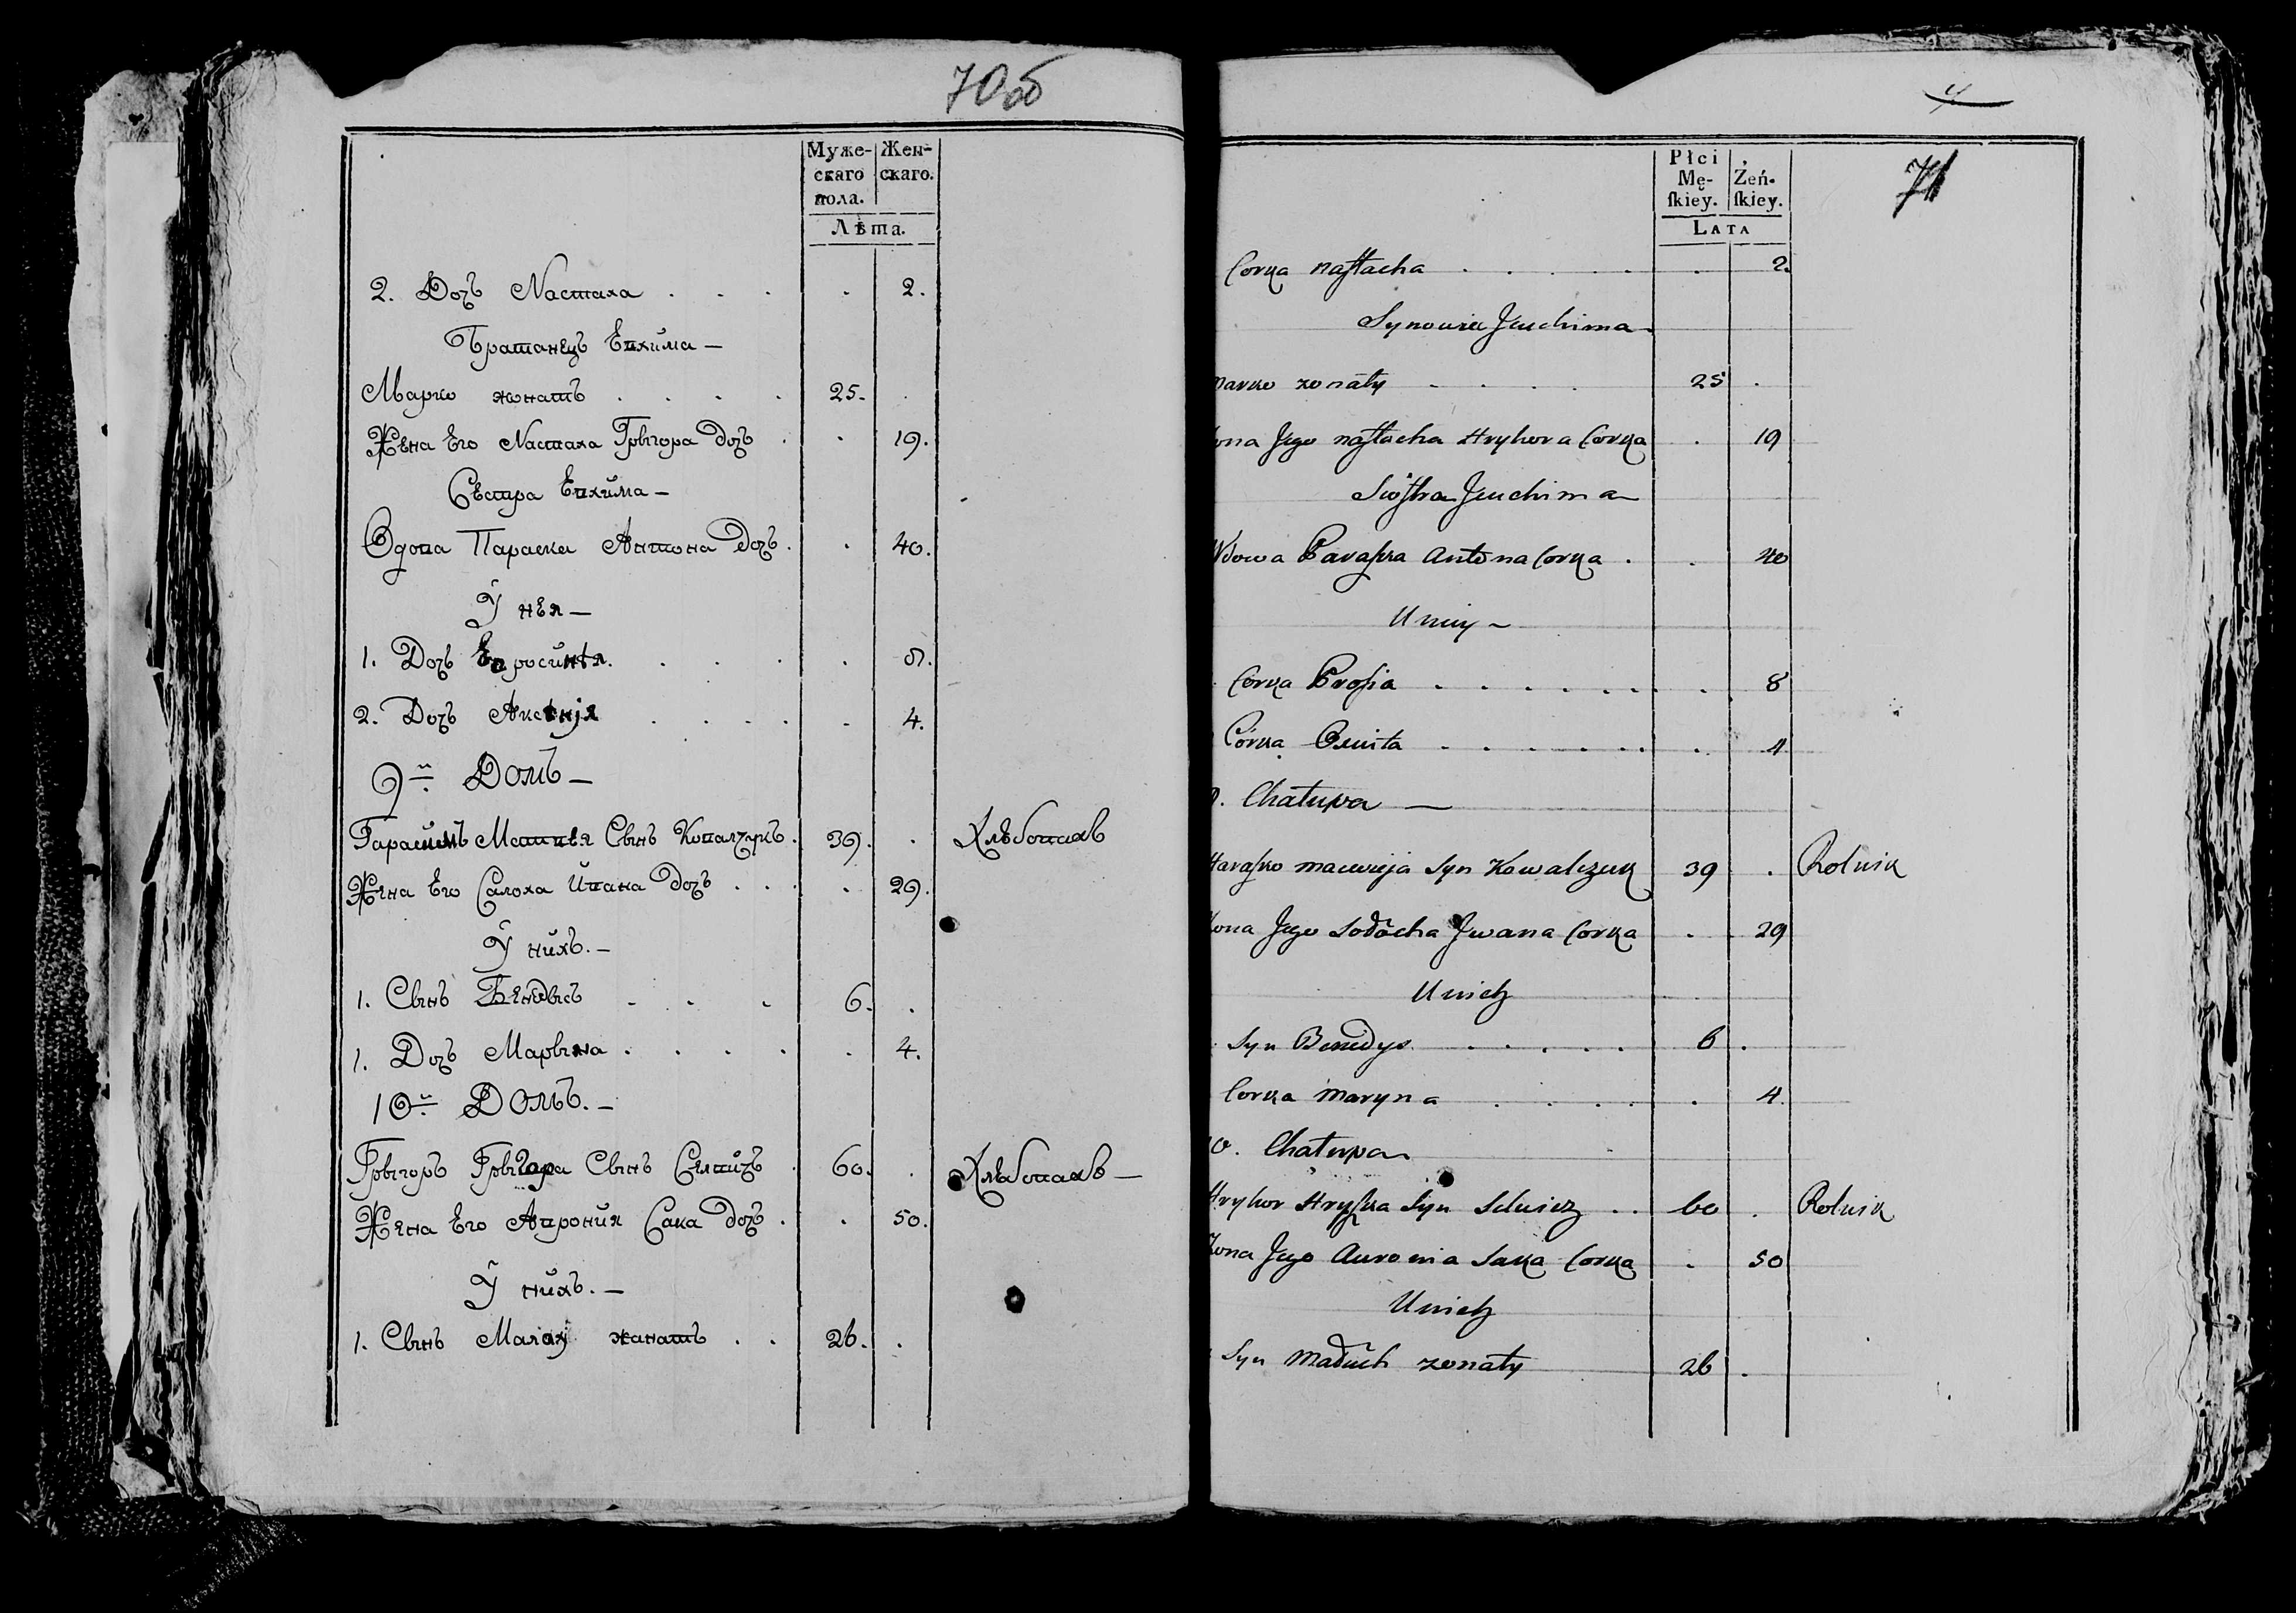 70об
Муже- Жен-
скаго скаго.
пола.
Лѣта.
2. Дочь Настаха . . . . 2.
Братанецъ Евхима —
Марко жонатъ . . . . 25. .
Жена Его Настаха Грыгора дочь . . 19.
Сестра Евхима —
Вдова Параска Антона дочь . . 40.
У нея —
1. Дочь . . . . 8.
2. Дочь Аксенія . . . . 4.
9й Домъ —
Гарасимъ Матвея Сынъ Ковалчукъ . 39. . Хлѣбопахъ
Жена Его Салоха Ивана дочь . . . . 29.
У нихъ. —
1. Сынъ Бенедысъ . . . 6. .
1. Дочь Марына . . . . . 4.
10й Домъ. —
Грыгоръ Грыгора Сынъ . 60. . Хлѣбопахъ —
Жена Его Аврония Сака дочь . . 50.
У нихъ. —
1. Сынъ жанатъ . . 26. .
4
71
Płci
Mę- Żeń-
ſkiey. ſkiey.
LATA
Corka Naſtacha . . . . . 2.
Synowiec Jeuchima
Marko zonaty . . . . 25 .
ona Jego Naſtacha Hryhora Corka . 19
Sioſtra Jeuchima
Wdowa Paraſka Antona Corka . . 40
U niey ~
Corka Proſia . . . . . . . 8
Córka . . . . . . . 4
9. Chałupa —
Haraſko Macwieja Syn Kowalczuk 39 . Rolnik
ona Jego Sołocha Jwana Corka . 29
U nich
Syn Benedys . . . . . 6 .
Corka Maryna . . . . . 4.
10. Chałupa
Hryhor Hryſka Syn . . 60 . Rolnik
Zona Jego Auronia Saka Corka . 50
U nich
Syn Małuch zonaty 26 .